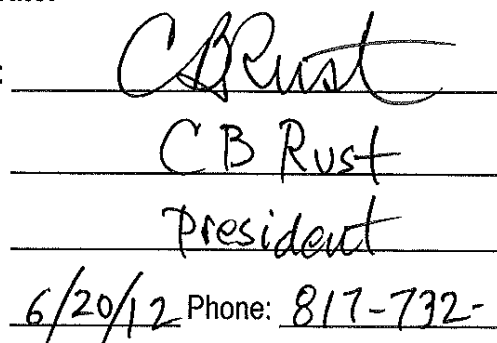 : CBRust
C B Rust
President
6/20/12 Phone: 817-732-